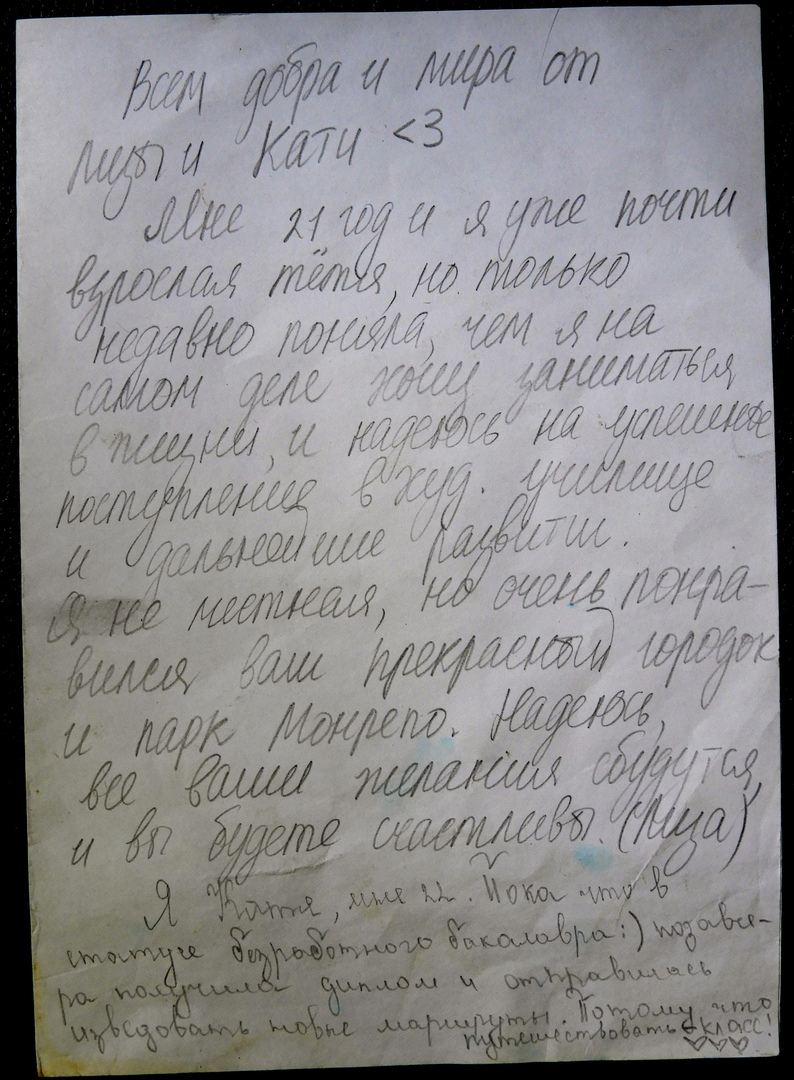 Всем добра и мира от
Лизы и Кати <3
Мне 21 год и я уже почти
взрослая тётя, но только
недавно поняла, чем я на
самом деле хочу заниматься
в жизни, и надеюсь на успешное
поступление в худ. училище
и дальнейшие развитии.
Я не местная, но очень понра-
вился ваш прекрасный городок
и парк Монрепо. Надеюсь,
все ваши желания сбудутся,
и вы будете счастливы. (Лиза)
Я Катя, мне 22. Пока что в
статусе безработного бакалавра:) позавче-
ра получила диплом и отправилась
изведовать новые маршруты. Потому что
путешествовать - класс!